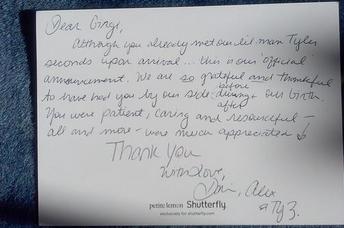 Dear Gingi,
Although you already met our lil man Tyler
seconds upon arrival... this is our 'official'
announcement. We are so grateful and thankful
to have had you by our side before during + after our birth
You were patient, caring and resourceful -
all and more - were much appreciated
Thank You
With love,
Alex
+ Ty 3.
petite lemon Shutterfly
exclusively for shutterfly.com